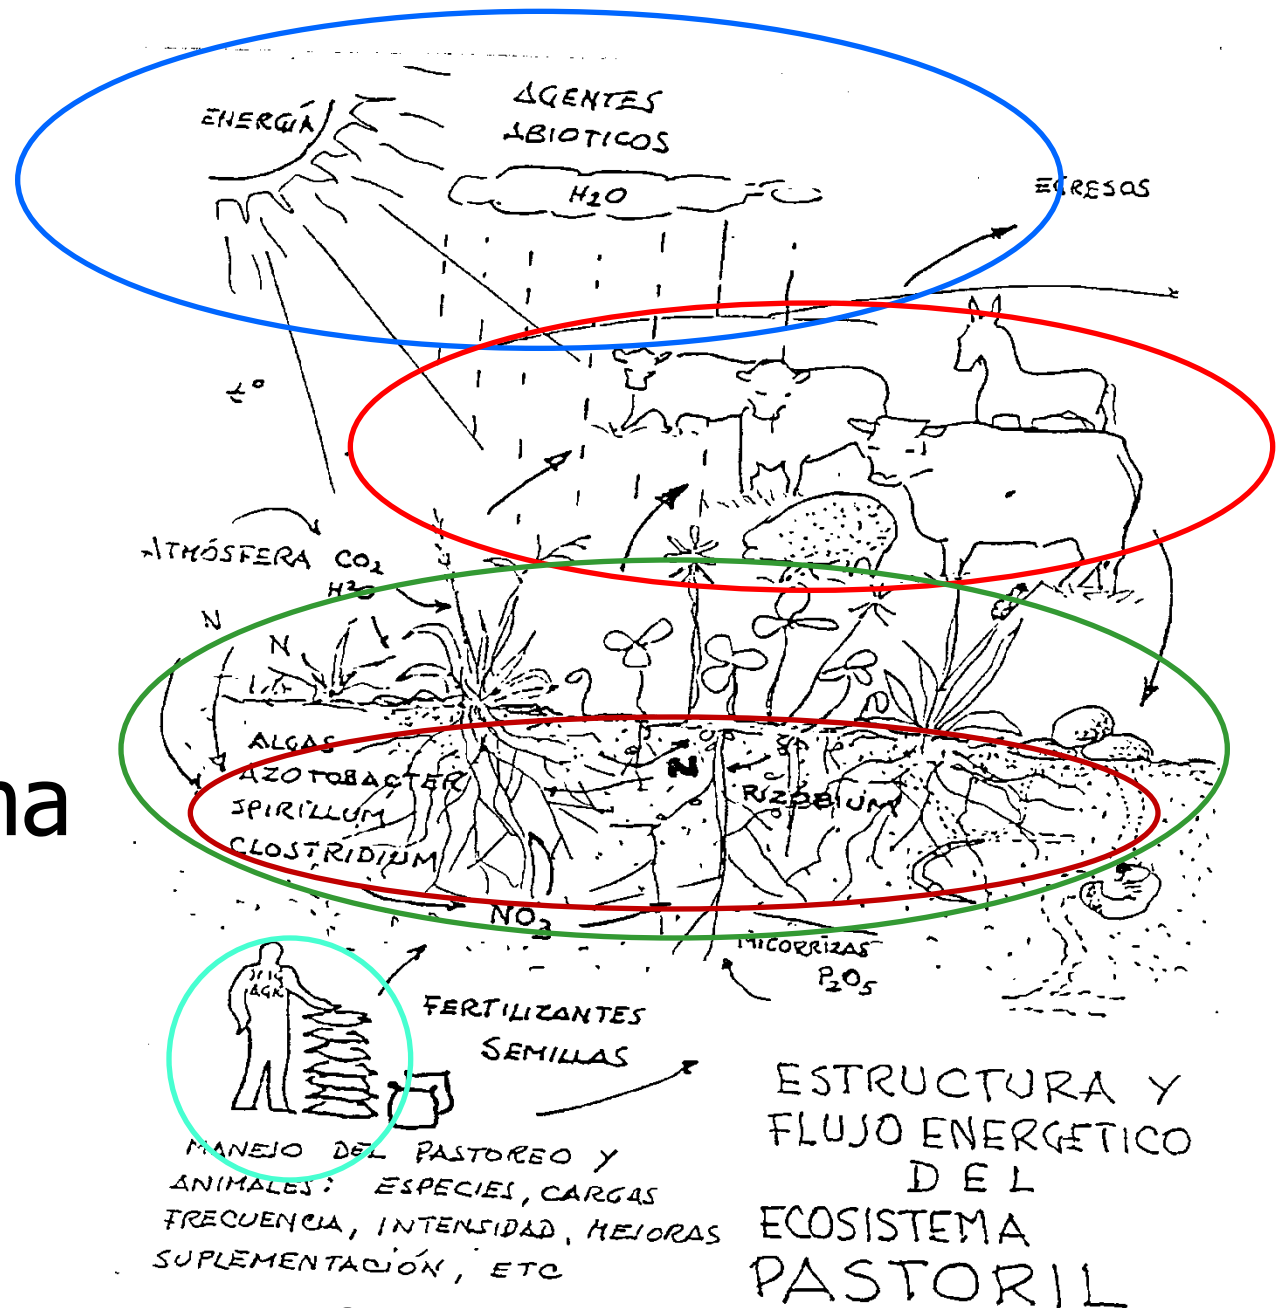 ENERGÍA
AGENTES
ABIOTICOS
H2O
EGRESOS
t°
ATMÓSFERA CO2
H2O
N
N
ALGAS
AZOTOBACTER
SPIRILLUM
CLOSTRIDIUM
N
RIZOBIUM
na
NO3
MICORRIZAS
P2O5
ING
AGR
FERTILIZANTES
SEMILLAS
MANEJO DEL PASTOREO Y
ANIMALES: ESPECIES, CARGAS
FRECUENCIA, INTENSIDAD, MEJORAS
SUPLEMENTACIÓN, ETC
ESTRUCTURA Y
FLUJO ENERGETICO
DEL
ECOSISTEMA
PASTORIL